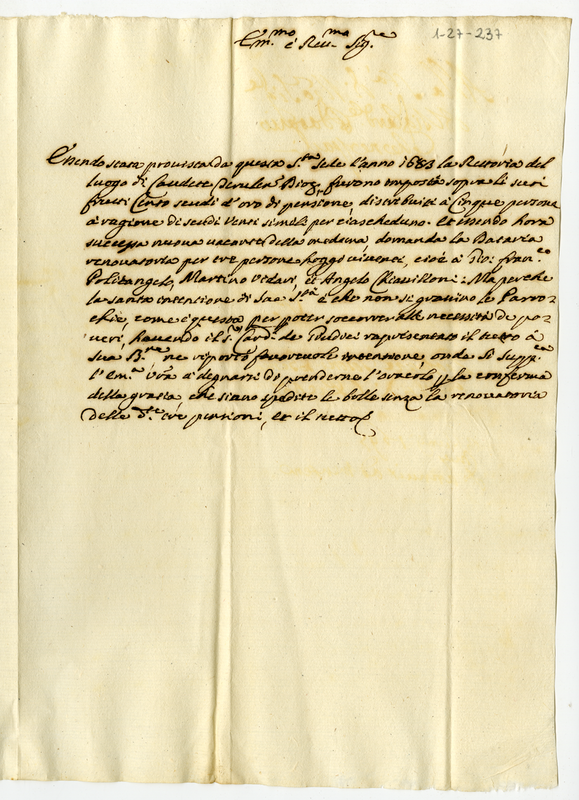 Em.mo é Reu.mo Sig.re
1-27-237
Essendo stata prouista da questa S.ta Sede l'anno 1683 la Rettoria del
luogo di Caudete furono imposti sopra li suoi
frutti Cento scudi d'oro di pensione distribuiti à Cinque persone
à ragione di scudi Venti simili per ciascheduno. et essendo hora
successa nuoua uacanza della medema, domanda la Dataria
renouatoria per tre persone hoggi uiuenti, cioè à Gio: Fran.co
Politangelo, Martino Vidari, et Angelo Chiauilloni: Ma perche
la santa intenzione di Sua S.tà è che non si grauino le Parroc-
chie, come è questa per potter soccorrer alle necessità de po-
ueri, hauendo il S. Card. de rapresentato il tutto à
Sua B.ne ne riportò fauoreuole intenzione, onde si supp.ca
l'Em.a V.ra à degnarsi di prenderne l'oracolo la conferma
della grazia che siano spedite le bolle senza la renouatoria
delle d.te tre pensioni, et il tutto